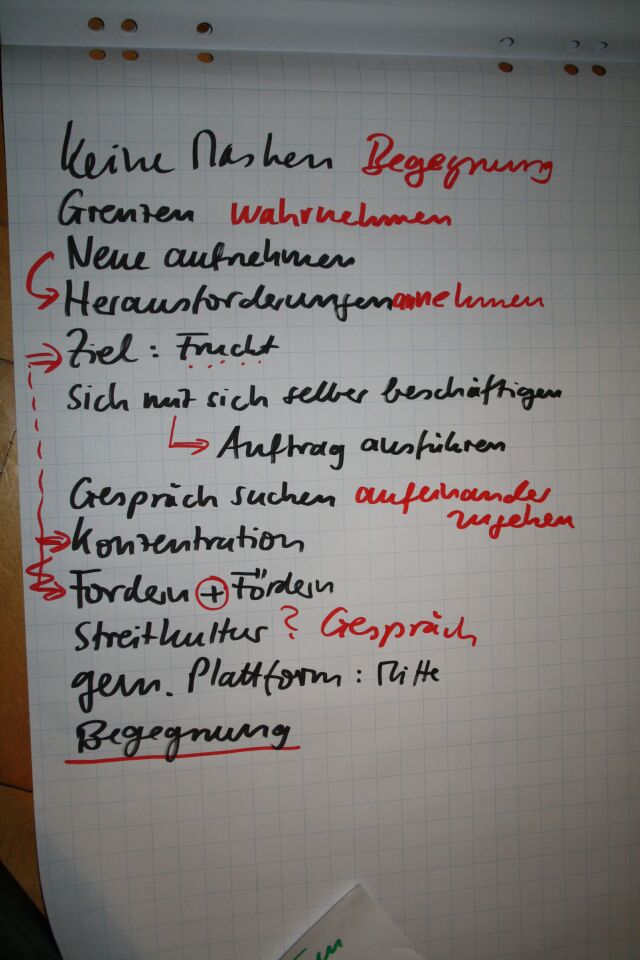 Keine Masken Begegnung
Grenzen wahrnehmen
Neue aufnehmen
Herausforderungen annehmen
Ziel: Frucht
Sich mit sich selber beschäftigen
Auftrag ausführen
Gespräch suchen aufeinander
zugehen
Konzentration
Fordern + Fördern
Streitkultur? Gespräch
gem. Plattform: Mitte
Begegnung